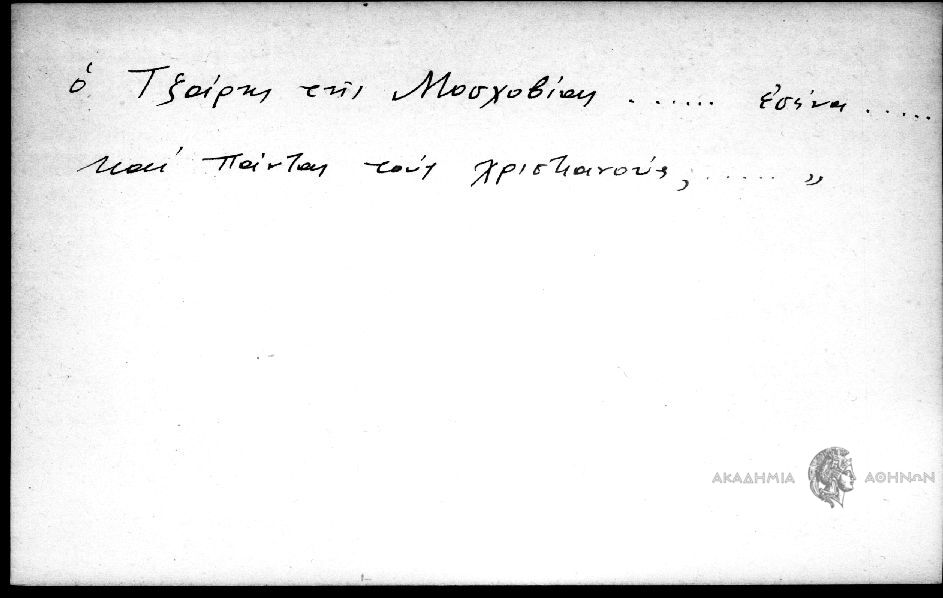 ὁ Τζάρης τῆς Μοσχοβίας ...... ἐσένα .....
καί πάντας τούς χριστιανούς, ..... "
ΑΚΑΔΗΜΙΑ ΑΘΗΝΩΝ